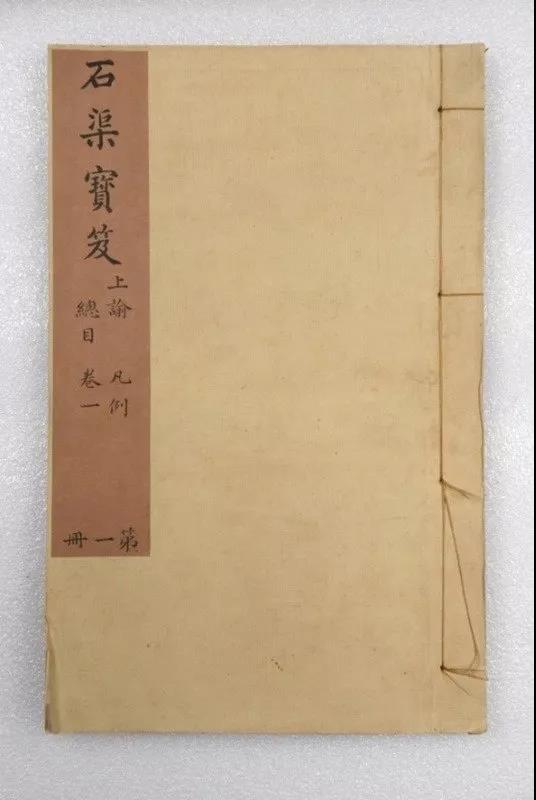 石渠寶笈
上諭 凡例
總目 卷一
第一冊